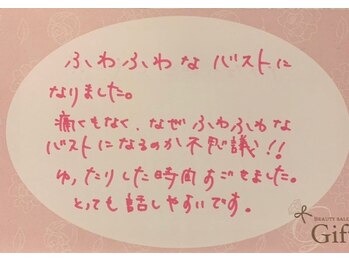 ふわふわな バストに
なりました。
痛くもなく、なぜ ふわふわな
バストになるのか不思議!!
ゆったりした時間すごせました。
とっても話しやすいです。
BEAUTY SAL
Gif